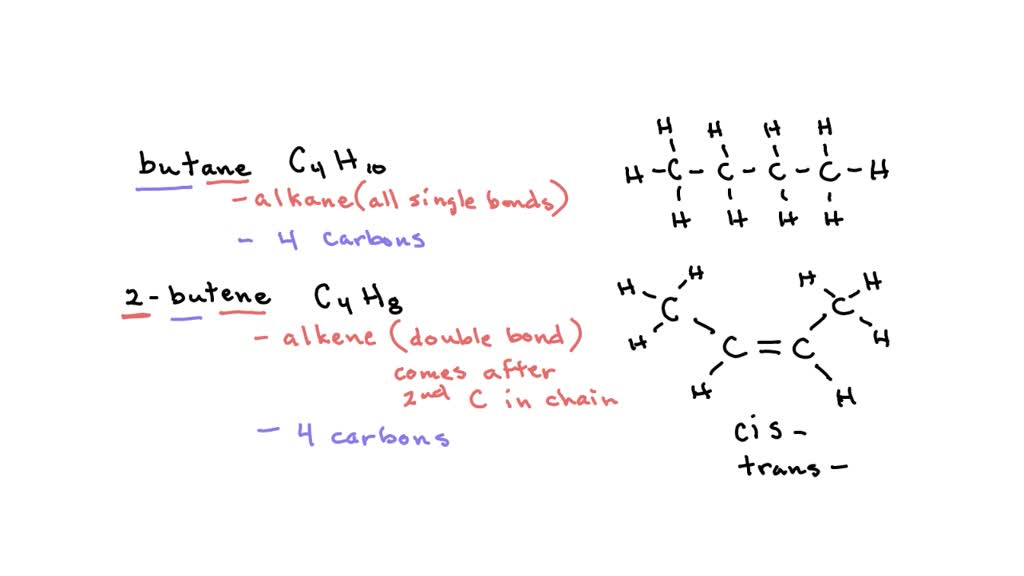 butane C4H10
- alkane (all single bonds)
- 4 carbons
2-butene C4H8
- alkene (double bond)
comes after
2nd C in chain
- 4 carbons
H H H H
H-C-C-C-C-H
H H H H
H H H H
C C
H H
C=C
H H
cis-
trans-